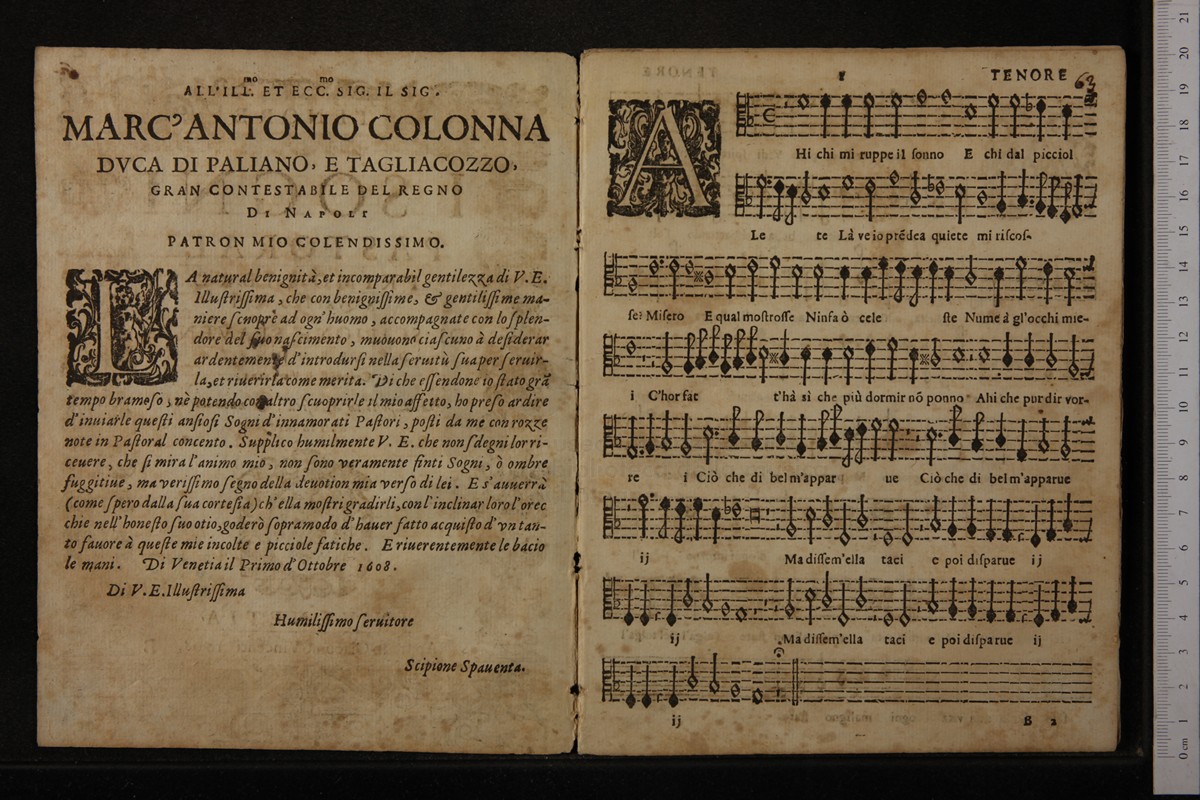 ALL'ILL.mo ET ECC.mo SIG. IL SIG.
MARC'ANTONIO COLONNA
DVCA DI PALIANO, E TAGLIACOZZO,
GRAN CONTESTABILE DEL REGNO
DI NAPOLI
PATRON MIO COLENDISSIMO.
LA natural benignità, et incomparabil gentilezza di V. E.
Illuſtriſſima, che con benigniſſime, & gentiliſſime ma-
niere ſcuopre ad ogn'huomo, accompagnate con lo ſplen-
dore del ſuo naſcimento, muouono ciaſcuno à deſiderar
ardentemente d'introdurſi nella ſeruitù ſua per ſeruir-
la, et riuerirla come merita. Di che eſſendone io ſtato grā
tempo bramoſo, nè potendo con altro ſcuoprirle il mio affetto, ho preſo ardire
d'inuiarle queſti anſioſi Sogni d'innamorati Paſtori, poſti da me con rozze
note in Paſtoral concento. Supplico humilmente V. E. che non ſdegni lor ri-
ceuere, che ſi mira l'animo mio, non ſono veramente finti Sogni, ò ombre
fuggitiue, ma veriſſimo ſegno della deuotion mia verſo di lei. E s'auuerrà
(come ſpero dalla ſua corteſia) ch'ella moſtri gradirli, con l'inclinar loro l'orec
chie nell'honeſto ſuo otio, goderò ſopramodo d'hauer fatto acquiſto d'vn tan-
to fauore à queſte mie incolte e picciole fatiche. E riuerentemente le bacio
le mani. Di Venetia il Primo d'Ottobre 1608.
Di V. E. Illuſtriſſima
Humiliſſimo ſeruitore
Scipione Spauenta.
TENORE
AHi chi mi ruppe il ſonno E chi dal picciol
Le te Là ve io prēdea quiete mi riſcoſ-
ſe? Miſero E qual moſtroſſe Ninfa ò cele ſte Nume à gl'occhi mie-
i C'hor fat t'hà sì che più dormir nō ponno Ahi che pur dir vor-
re i Ciò che di bel m'appar ue Ciò che di bel m'apparue
ij Ma diſſem'ella taci e poi diſparue ij
ij Ma diſſem'ella taci e poi diſparue ij
ij B 2